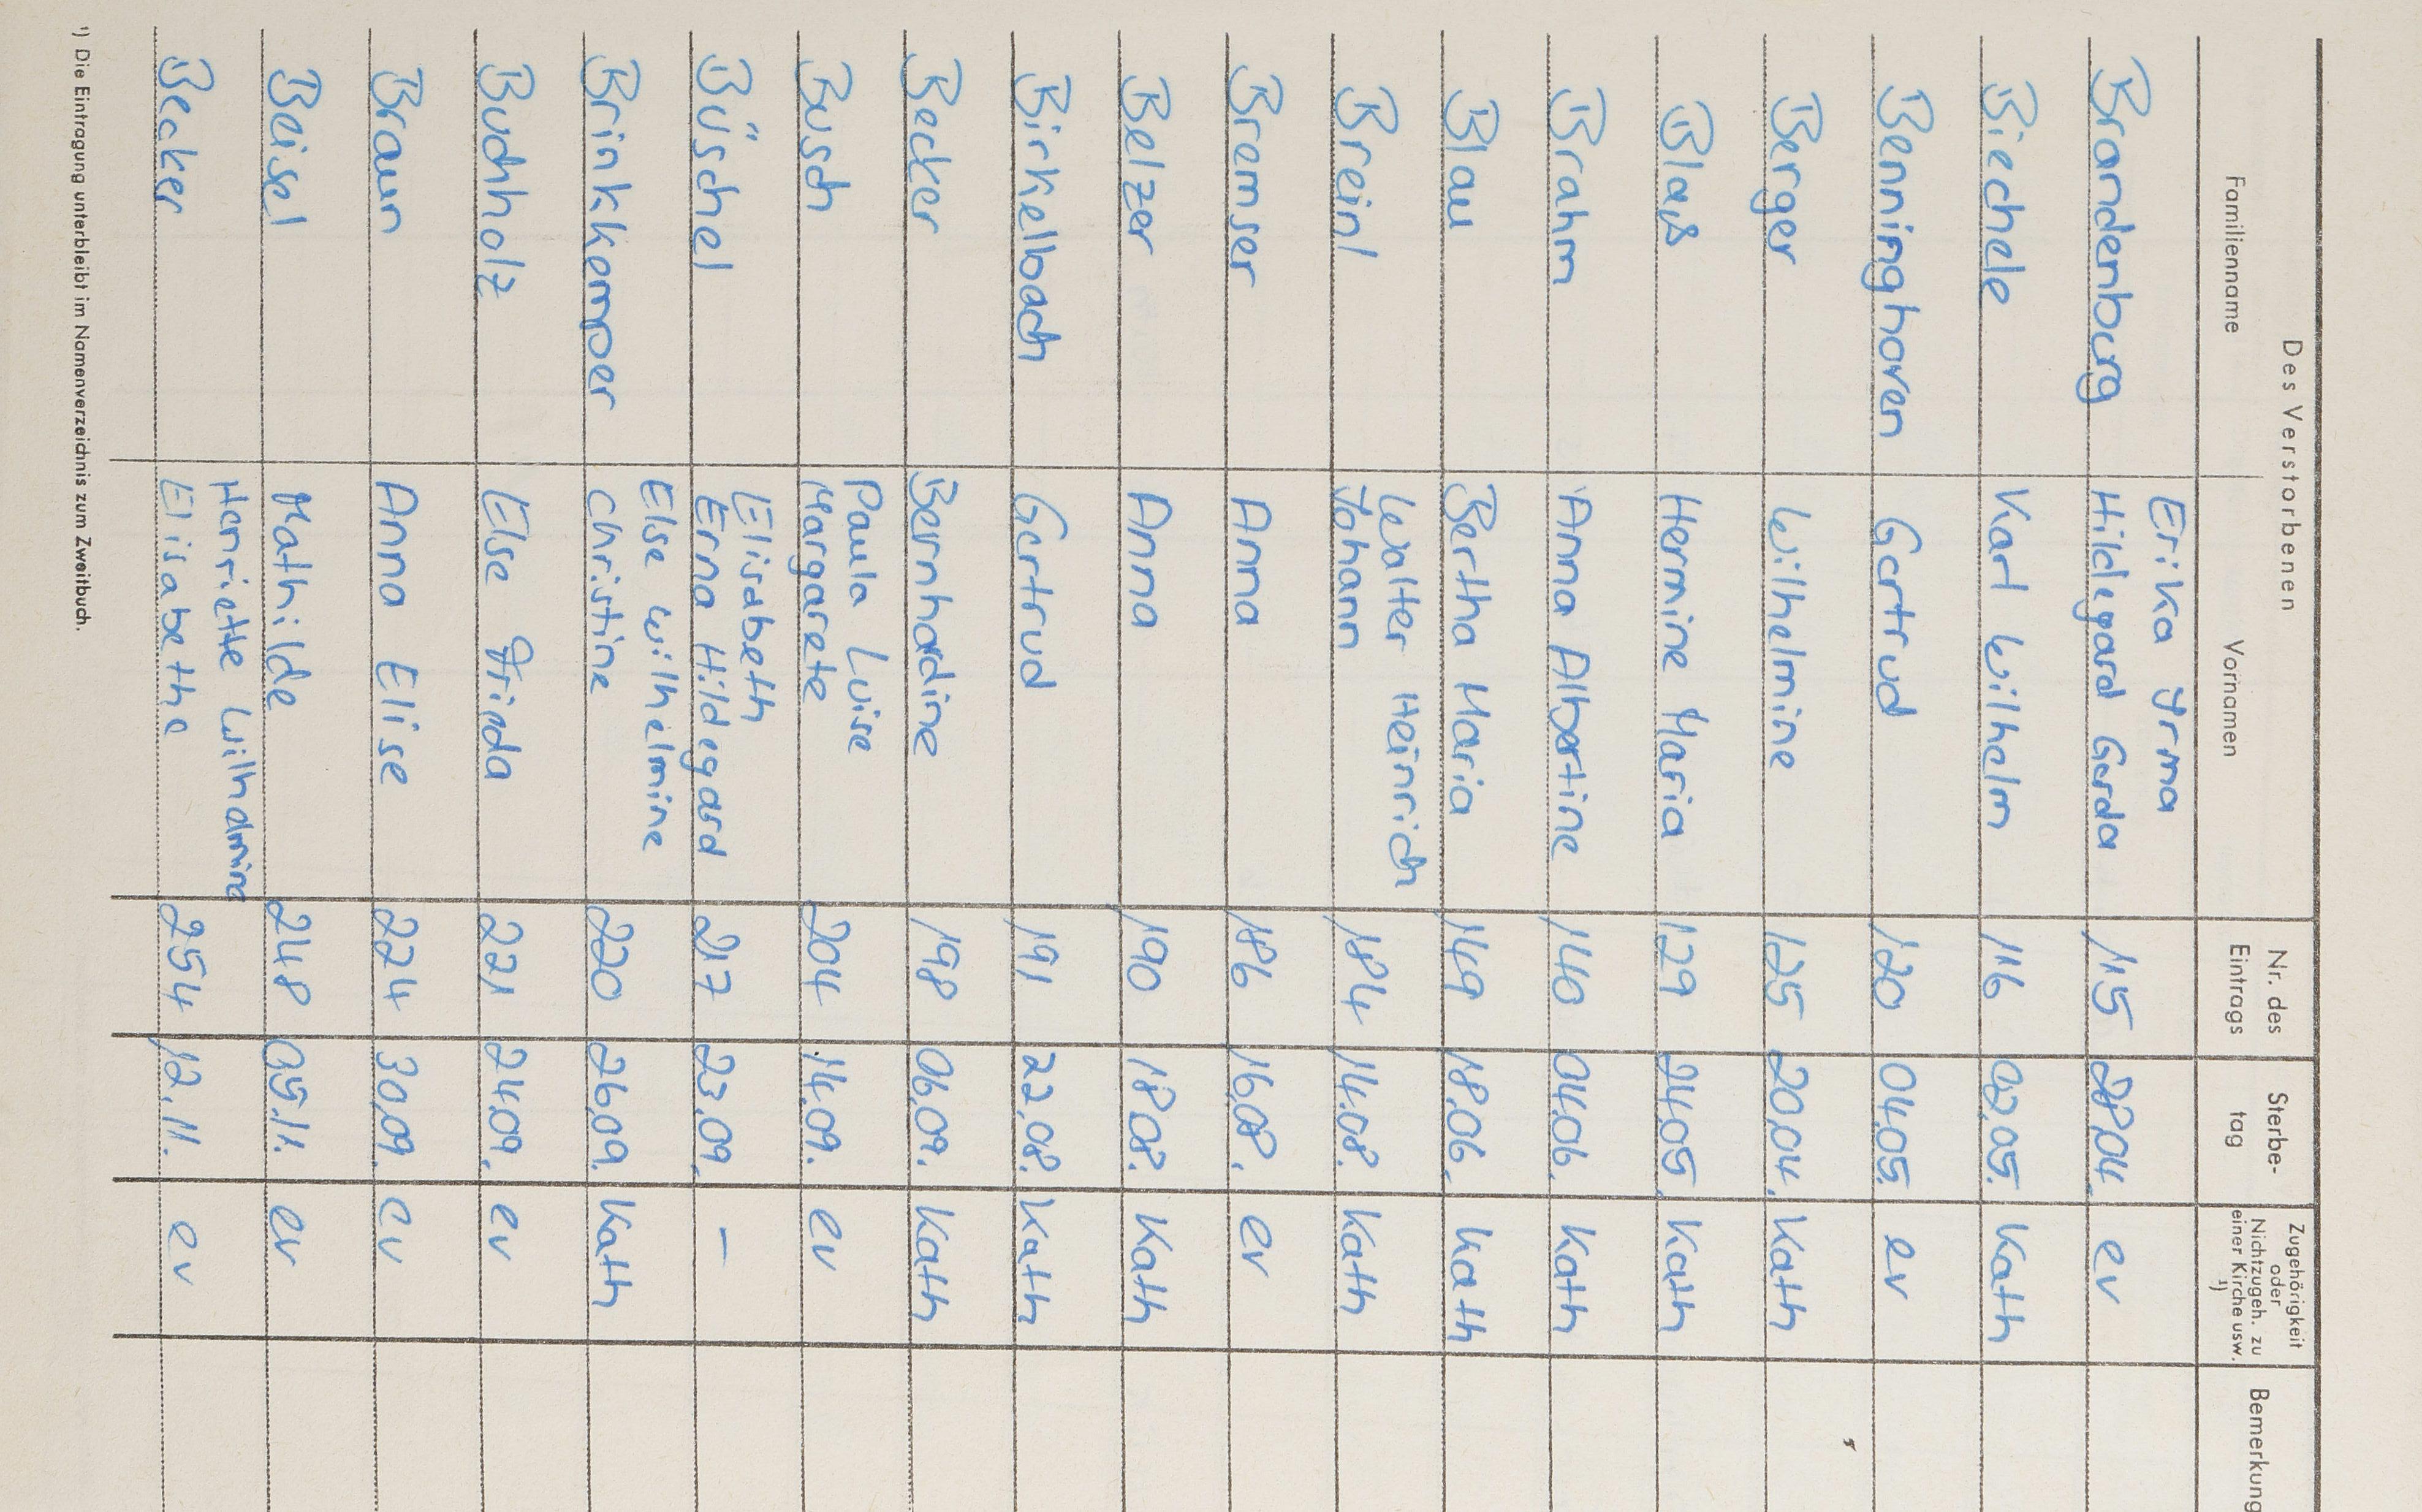 Des Verstorbenen
Familienname Vornamen Nr. des Eintrags Sterbe-tag Zugehörigkeit oder Nichtzugeh. zu einer Kirche usw. ¹) Bemerkung
Erika Irma
Brandenburg Hildegard Gerda 115 28.04. ev
Biechele Karl Wilhelm 116 02.05. Kath
Benninghoven Gertrud 120 04.05. ev
Berger Wilhelmine 125 20.04. Kath
Blaß Hermine Maria 129 24.05. Kath
Brahm Anna Albertine 140 04.06. Kath
Blau Bertha Maria 149 18.06. Kath
Walter Heinrich
Breinl Johann 184 14.08. Kath
Bremser Anna 186 16.08. ev
Belzer Anna 190 18.08. Kath
Birkelbach Gertrud 191 22.08. Kath
Becker Bernhardine 198 06.09. Kath
Paula Luise
Busch Margarete 204 14.09. ev
Elisabeth
Büschel Erna Hildegard 217 23.09. –
Else Wilhelmine
Brinkkemper Christine 220 26.09. Kath
Buchholz Else Frieda 221 24.09. ev
Braun Anna Elise 224 30.09. ev
Beisel Mathilde 248 05.11. ev
Henriette Wilhelmine
Becker Elisabethe 254 12.11. ev
¹) Die Eintragung unterbleibt im Namenverzeichnis zum Zweitbuch.